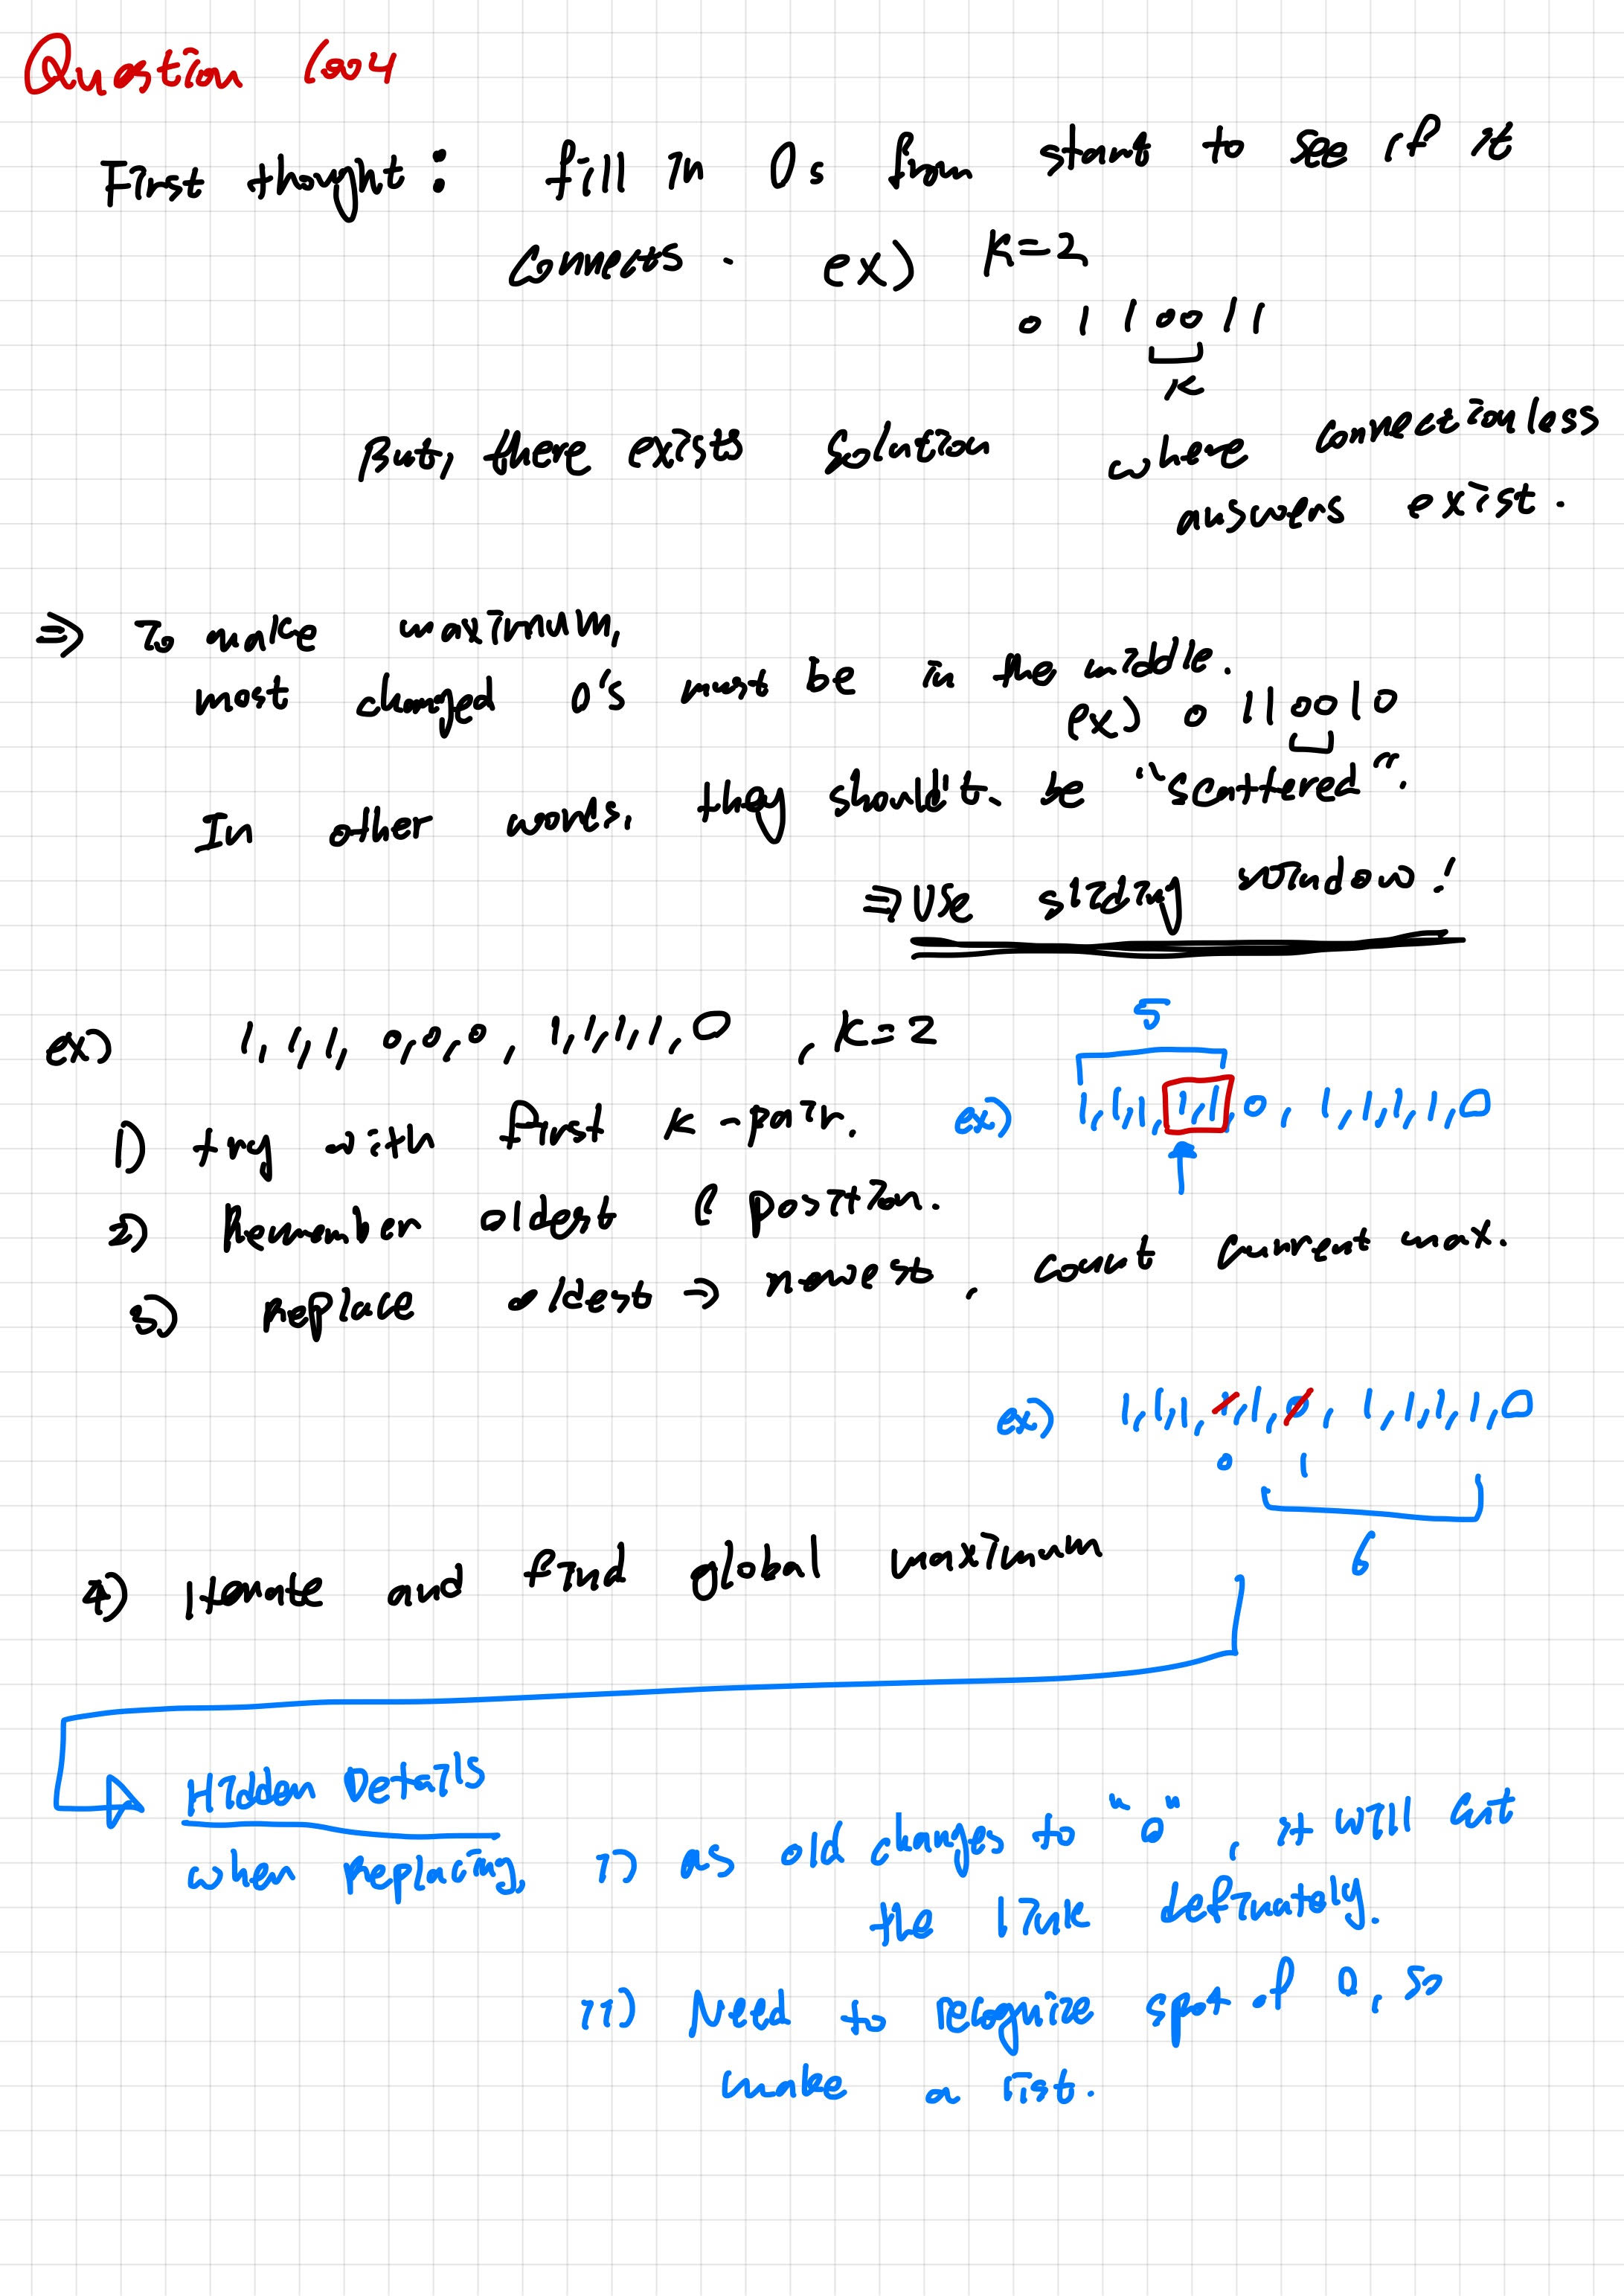 Question 1004
First thought: fill in 0s from start to see if it
connects. ex) K=2
0 1 1 0 0 1 1
K
But, there exists solution where connectionless
answers exist.
⇒ To make maximum,
most changed 0's must be in the middle.
ex) 0 1 1 0 0 1 0
In other words, they should't be "scattered".
⇒ Use sliding window!
ex) 1, 1, 1, 0, 0, 0, 1, 1, 1, 1, 0 , K=2
5
ex) 1, 1, 1, 1, 1, 0, 1, 1, 1, 1, 0
1) try with first K-pair.
2) Remember oldest position.
3) Replace oldest → newest, count current max.
ex) 1, 1, 1, 1, 1, 0, 1, 1, 1, 1, 0
0 1
6
4) Iterate and find global maximum
Hidden Details
when replacing, i) as old changes to "0", it will cut
the link definately.
ii) Need to recognize spot of 0, so
make a list.